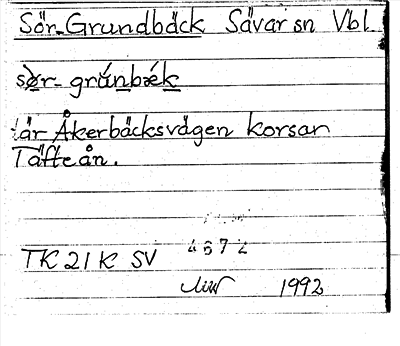 Sör-Grundbäck Sävar sn Vbl.
sø̀r- grúnbæ̀k
där Åkerbäcksvägen korsar
Täfteån.
TK 21 K SV 4672
1992